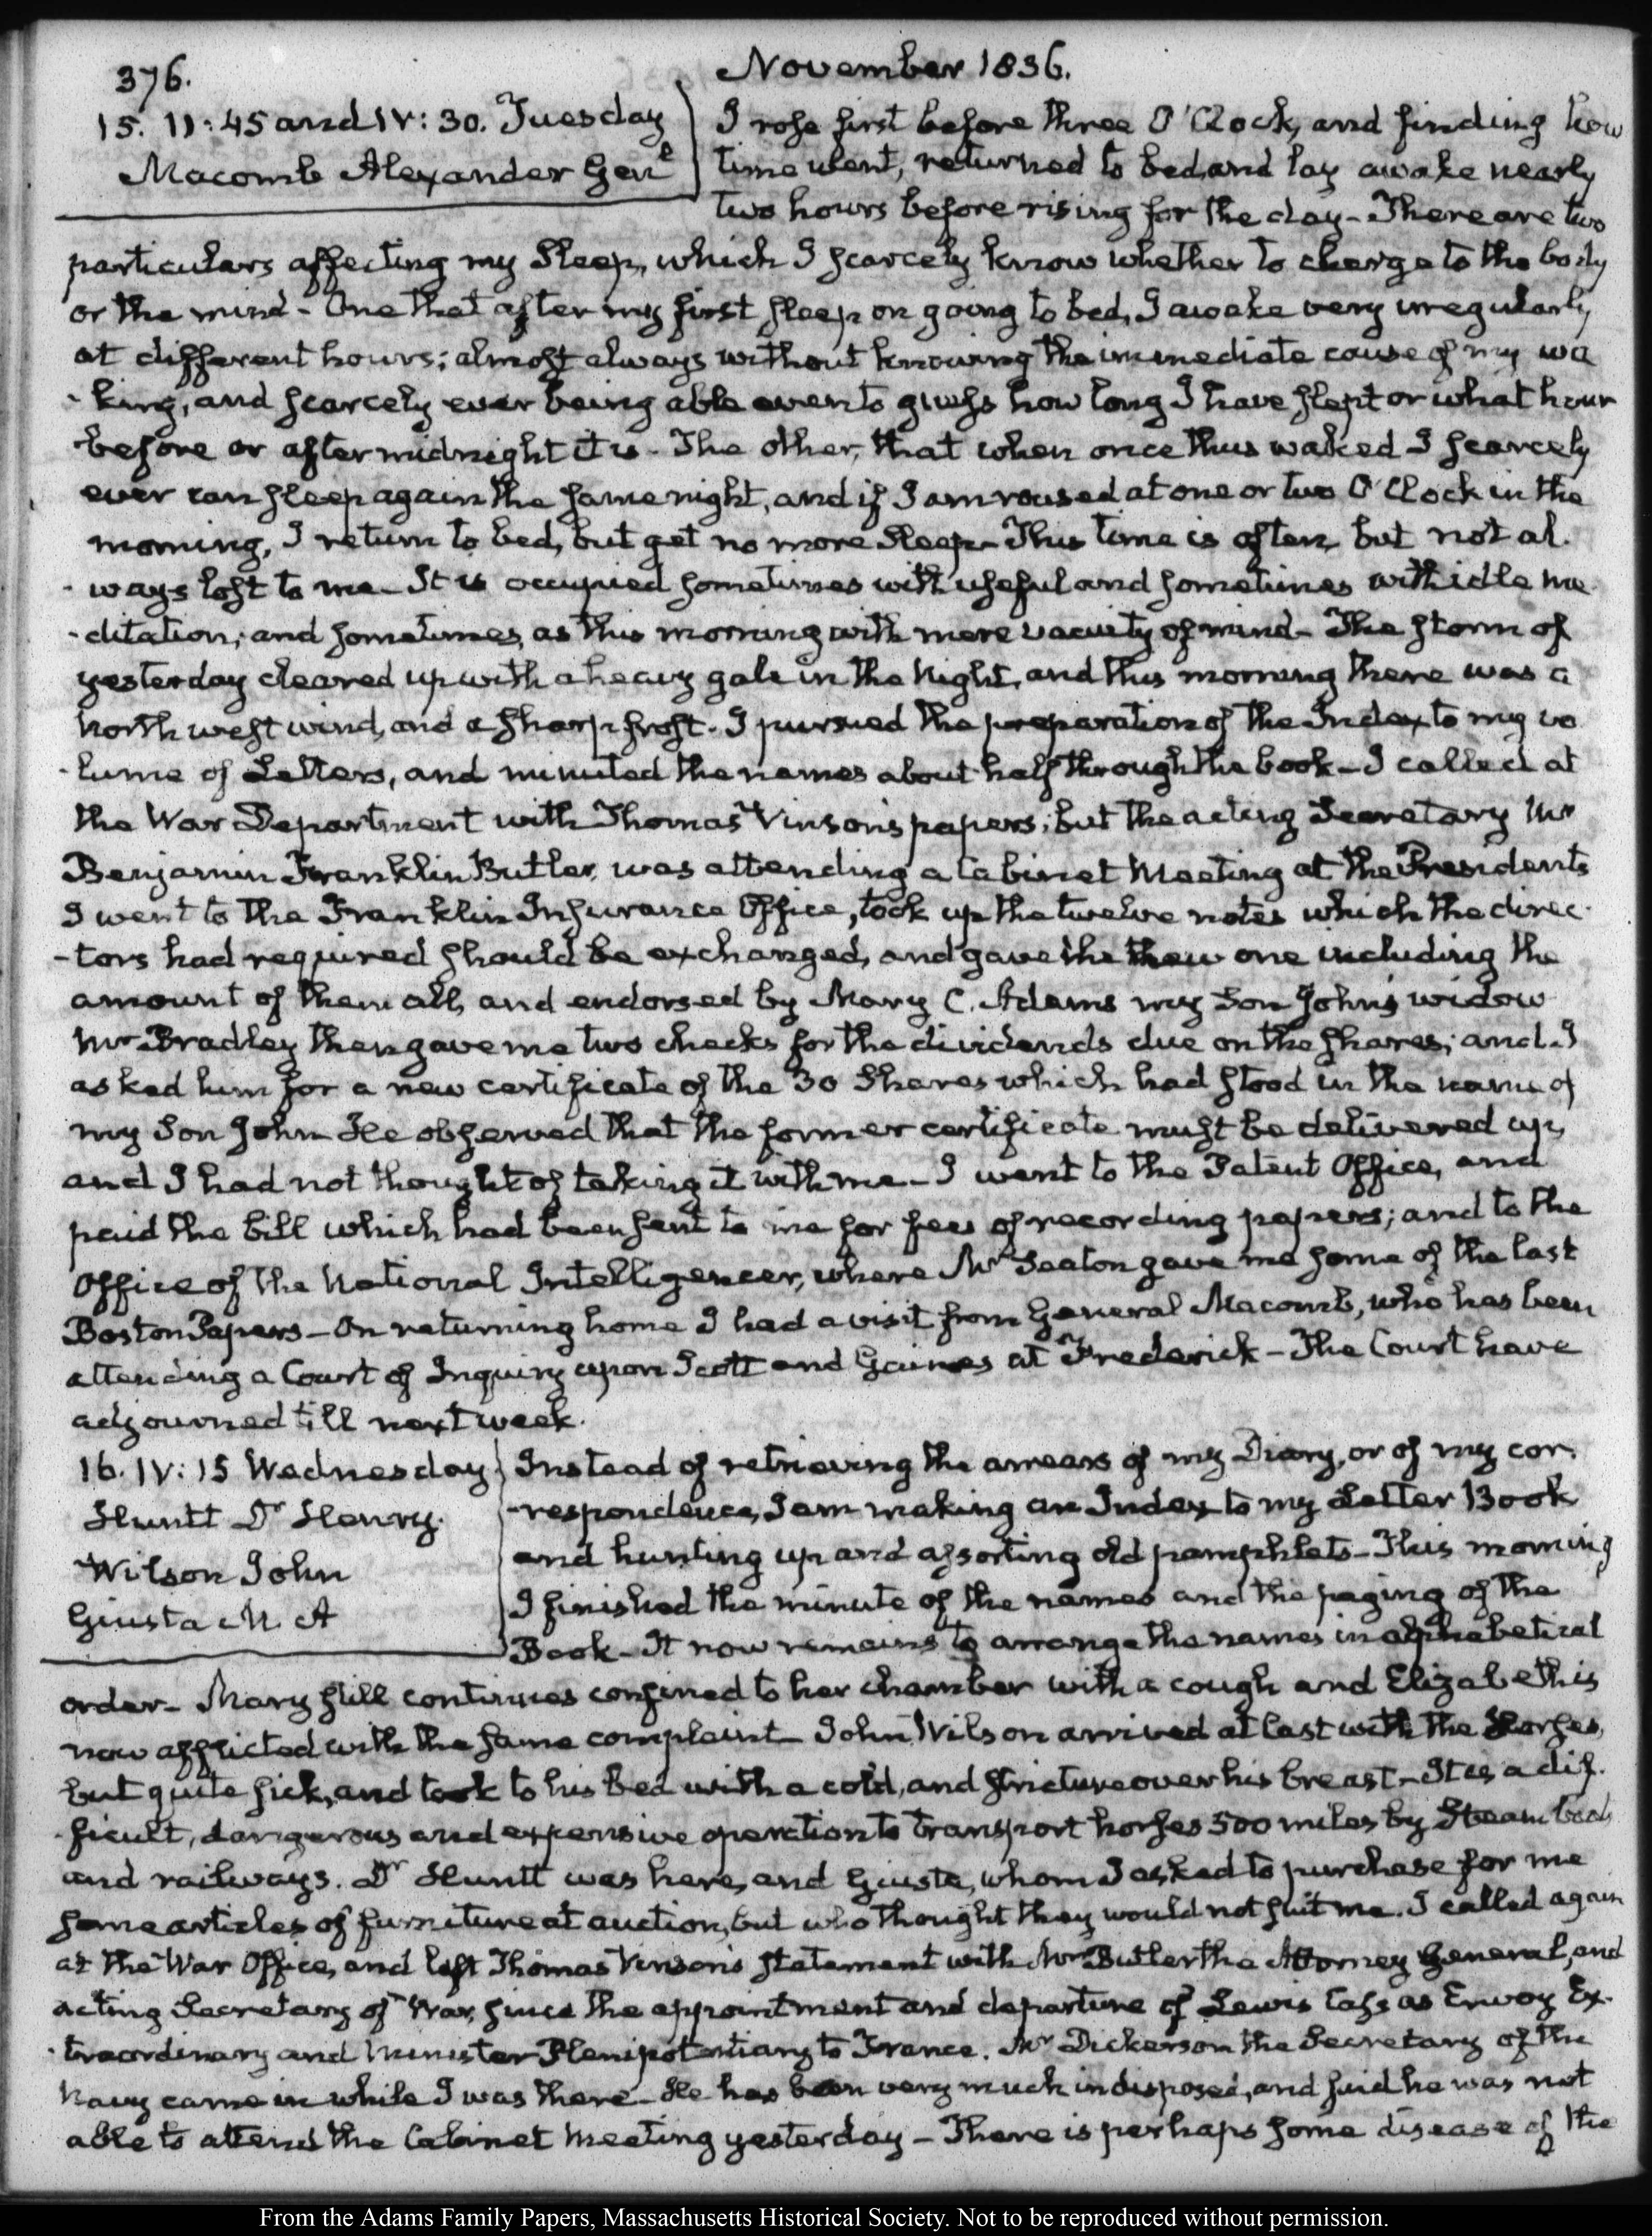 376.
November 1836.
15. II:45 and IV:30. Tuesday
Macomb Alexander Genl
I rose first before three O'Clock, and finding how
time went, returned to bed, and lay awake nearly
two hours before rising for the day – There are two
particulars affecting my Sleep, which I scarcely know whether to charge to the body
or the mind – One that after my first sleep on going to bed, I awake very irregularly
at different hours; almost always without knowing the immediate cause of my wa
-king, and scarcely ever being able even to guess how long I have slept or what hour
before or after midnight it is – The other, that when once thus waked I scarcely
ever can sleep again the same night, and if I am roused at one or two O'Clock in the
morning, I return to bed, but get no more Sleep – This time is often but not al-
-ways lost to me – It is occupied sometimes with useful and sometimes with idle me
-ditation; and sometimes, as this morning with mere vacuity of mind – The storm of
yesterday cleared up with a heavy gale in the Night, and this morning there was a
North west wind, and a sharp frost. I pursued the preparation of the Index to my vo
-lume of Letters, and minuted the names about half through the book – I called at
the War Department with Thomas Vinson's papers; but the acting Secretary Mr
Benjamin Franklin Butler, was attending a Cabinet Meeting at the Presidents
I went to the Franklin Insurance Office, took up the twelve notes which the direc-
-tors had required should be exchanged, and gave the them one including the
amount of them all, and endorsed by Mary C. Adams my Son John's widow
Mr Bradley then gave me two checks for the dividends due on the shares; and I
asked him for a new certificate of the 30 Shares which had stood in the name of
my Son John – He observed that the former certificate must be delivered up,
and I had not thought of taking it with me – I went to the Patent Office, and
paid the bill which had been sent to me for fees of recording papers; and to the
Office of the National Intelligencer, where Mr Seaton gave me some of the last
Boston Papers – On returning home I had a visit from General Macomb, who has been
attending a Court of Inquiry upon Scott and Gaines at Frederick – The Court have
adjourned till next week.
16. IV:15 Wednesday
Huntt Dr Henry.
Wilson John
Giusta M. A
Instead of retrieving the arrears of my Diary, or of my cor-
-respondence, I am making an Index to my Letter Book
and hunting up and assorting old pamphlets – This morning
I finished the minute of the names and the paging of the
Book – It now remains to arrange the names in alphabetical
order – Mary still continues confined to her chamber with a cough and Elizabeth is
now afflicted with the same complaint – John Wilson arrived at last with the Horses,
but quite sick, and took to his bed with a cold, and stricture over his breast – It is a dif-
-ficult, dangerous and expensive operation to transport horses 500 miles by Steam boats
and railways. Dr Huntt was here, and Giusta, whom I asked to purchase for me
some articles of furniture at auction, but who thought they would not suit me. I called again
at the War Office, and left Thomas Vinson's statement with Mr Butler the Attorney General, and
acting Secretary of War, since the appointment and departure of Lewis Cass as Envoy Ex-
-traordinary and Minister Plenipotentiary to France. Mr Dickerson the Secretary of the
Navy came in while I was there – He has been very much indisposed, and said he was not
able to attend the Cabinet Meeting yesterday – There is perhaps some disease of the
From the Adams Family Papers, Massachusetts Historical Society. Not to be reproduced without permission.